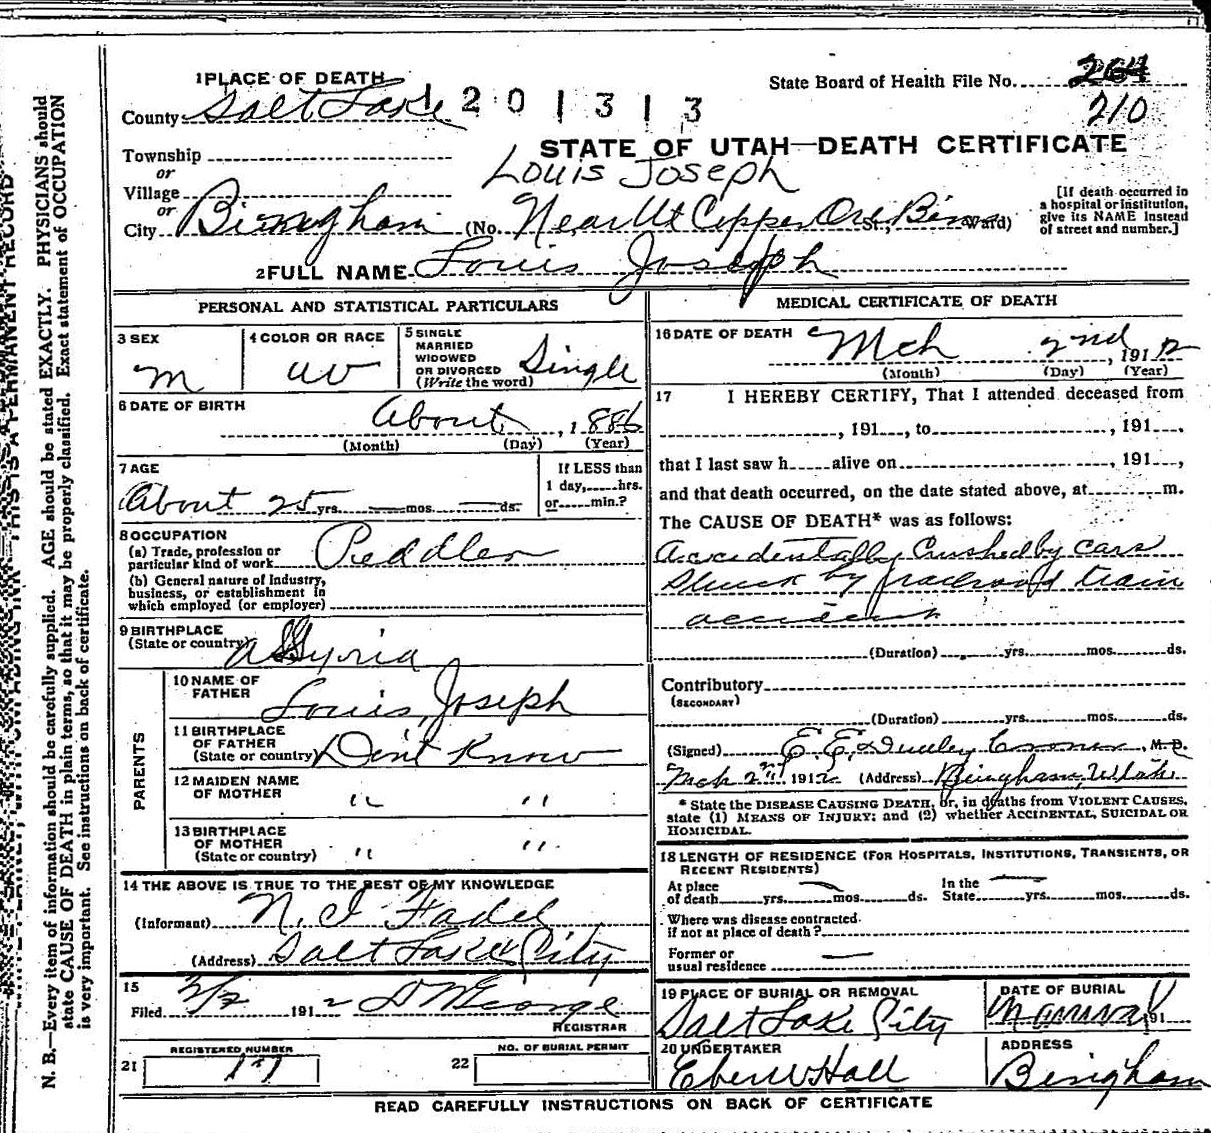 1 PLACE OF DEATH
State Board of Health File No. 264
210
County Salt Lake 1 2 0 1 3 1 3
STATE OF UTAH—DEATH CERTIFICATE
Township
or
Louis Joseph
Village
or
City Bingham (No. Near Ut Copper Ore Bins St., Ward)
[If death occurred in a hospital or institution, give its NAME instead of street and number.]
2 FULL NAME Louis Joseph
PERSONAL AND STATISTICAL PARTICULARS
3 SEX
M
4 COLOR OR RACE
W
5 SINGLE
MARRIED
WIDOWED
OR DIVORCED
(Write the word)
Single
6 DATE OF BIRTH
About, 1886
(Month) (Day) (Year)
7 AGE
About 25 yrs. — mos. — ds.
If LESS than
1 day, hrs.
or min.?
8 OCCUPATION
(a) Trade, profession or
particular kind of work Peddler
(b) General nature of Industry,
business, or establishment in
which employed (or employer)
9 BIRTHPLACE
(State or country) Assyria
PARENTS
10 NAME OF
FATHER Louis Joseph
11 BIRTHPLACE
OF FATHER
(State or country) Dint Know
12 MAIDEN NAME
OF MOTHER " "
13 BIRTHPLACE
OF MOTHER
(State or country) " "
14 THE ABOVE IS TRUE TO THE BEST OF MY KNOWLEDGE
(Informant) N. I. Fadel
(Address) Salt Lake City
15
Filed 3/2 1912
REGISTRAR
21 REGISTERED NUMBER
22 NO. OF BURIAL PERMIT
MEDICAL CERTIFICATE OF DEATH
16 DATE OF DEATH
Mch 2nd, 1912
(Month) (Day) (Year)
17 I HEREBY CERTIFY, That I attended deceased from
, 191 , to , 191 ,
that I last saw h alive on , 191 ,
and that death occurred, on the date stated above, at m.
The CAUSE OF DEATH* was as follows:
Accidentally Crushed by cars
Struck by railroad train
accident
(Duration) yrs. mos. ds.
Contributory
(SECONDARY)
(Duration) yrs. mos. ds.
(Signed) E. E. Dudley Coroner, M.D.
Mch 2nd 1912 (Address) Bingham, Utah
* State the DISEASE CAUSING DEATH, or, in deaths from VIOLENT CAUSES,
state (1) MEANS OF INJURY; and (2) whether ACCIDENTAL, SUICIDAL OR
HOMICIDAL.
18 LENGTH OF RESIDENCE (FOR HOSPITALS, INSTITUTIONS, TRANSIENTS, OR
RECENT RESIDENTS)
At place
of death yrs. mos. ds.
In the
State yrs. mos. ds.
Where was disease contracted
if not at place of death?
Former or
usual residence
19 PLACE OF BURIAL OR REMOVAL
Salt Lake City
DATE OF BURIAL
191
20 UNDERTAKER
Eber W Hall
ADDRESS
Bingham
READ CAREFULLY INSTRUCTIONS ON BACK OF CERTIFICATE
N. B.—Every item of information should be carefully supplied. AGE should be stated EXACTLY. PHYSICIANS should
state CAUSE OF DEATH in plain terms, so that it may be properly classified. Exact statement of OCCUPATION
is very important. See instructions on back of certificate.
THIS IS A PERMANENT RECORD